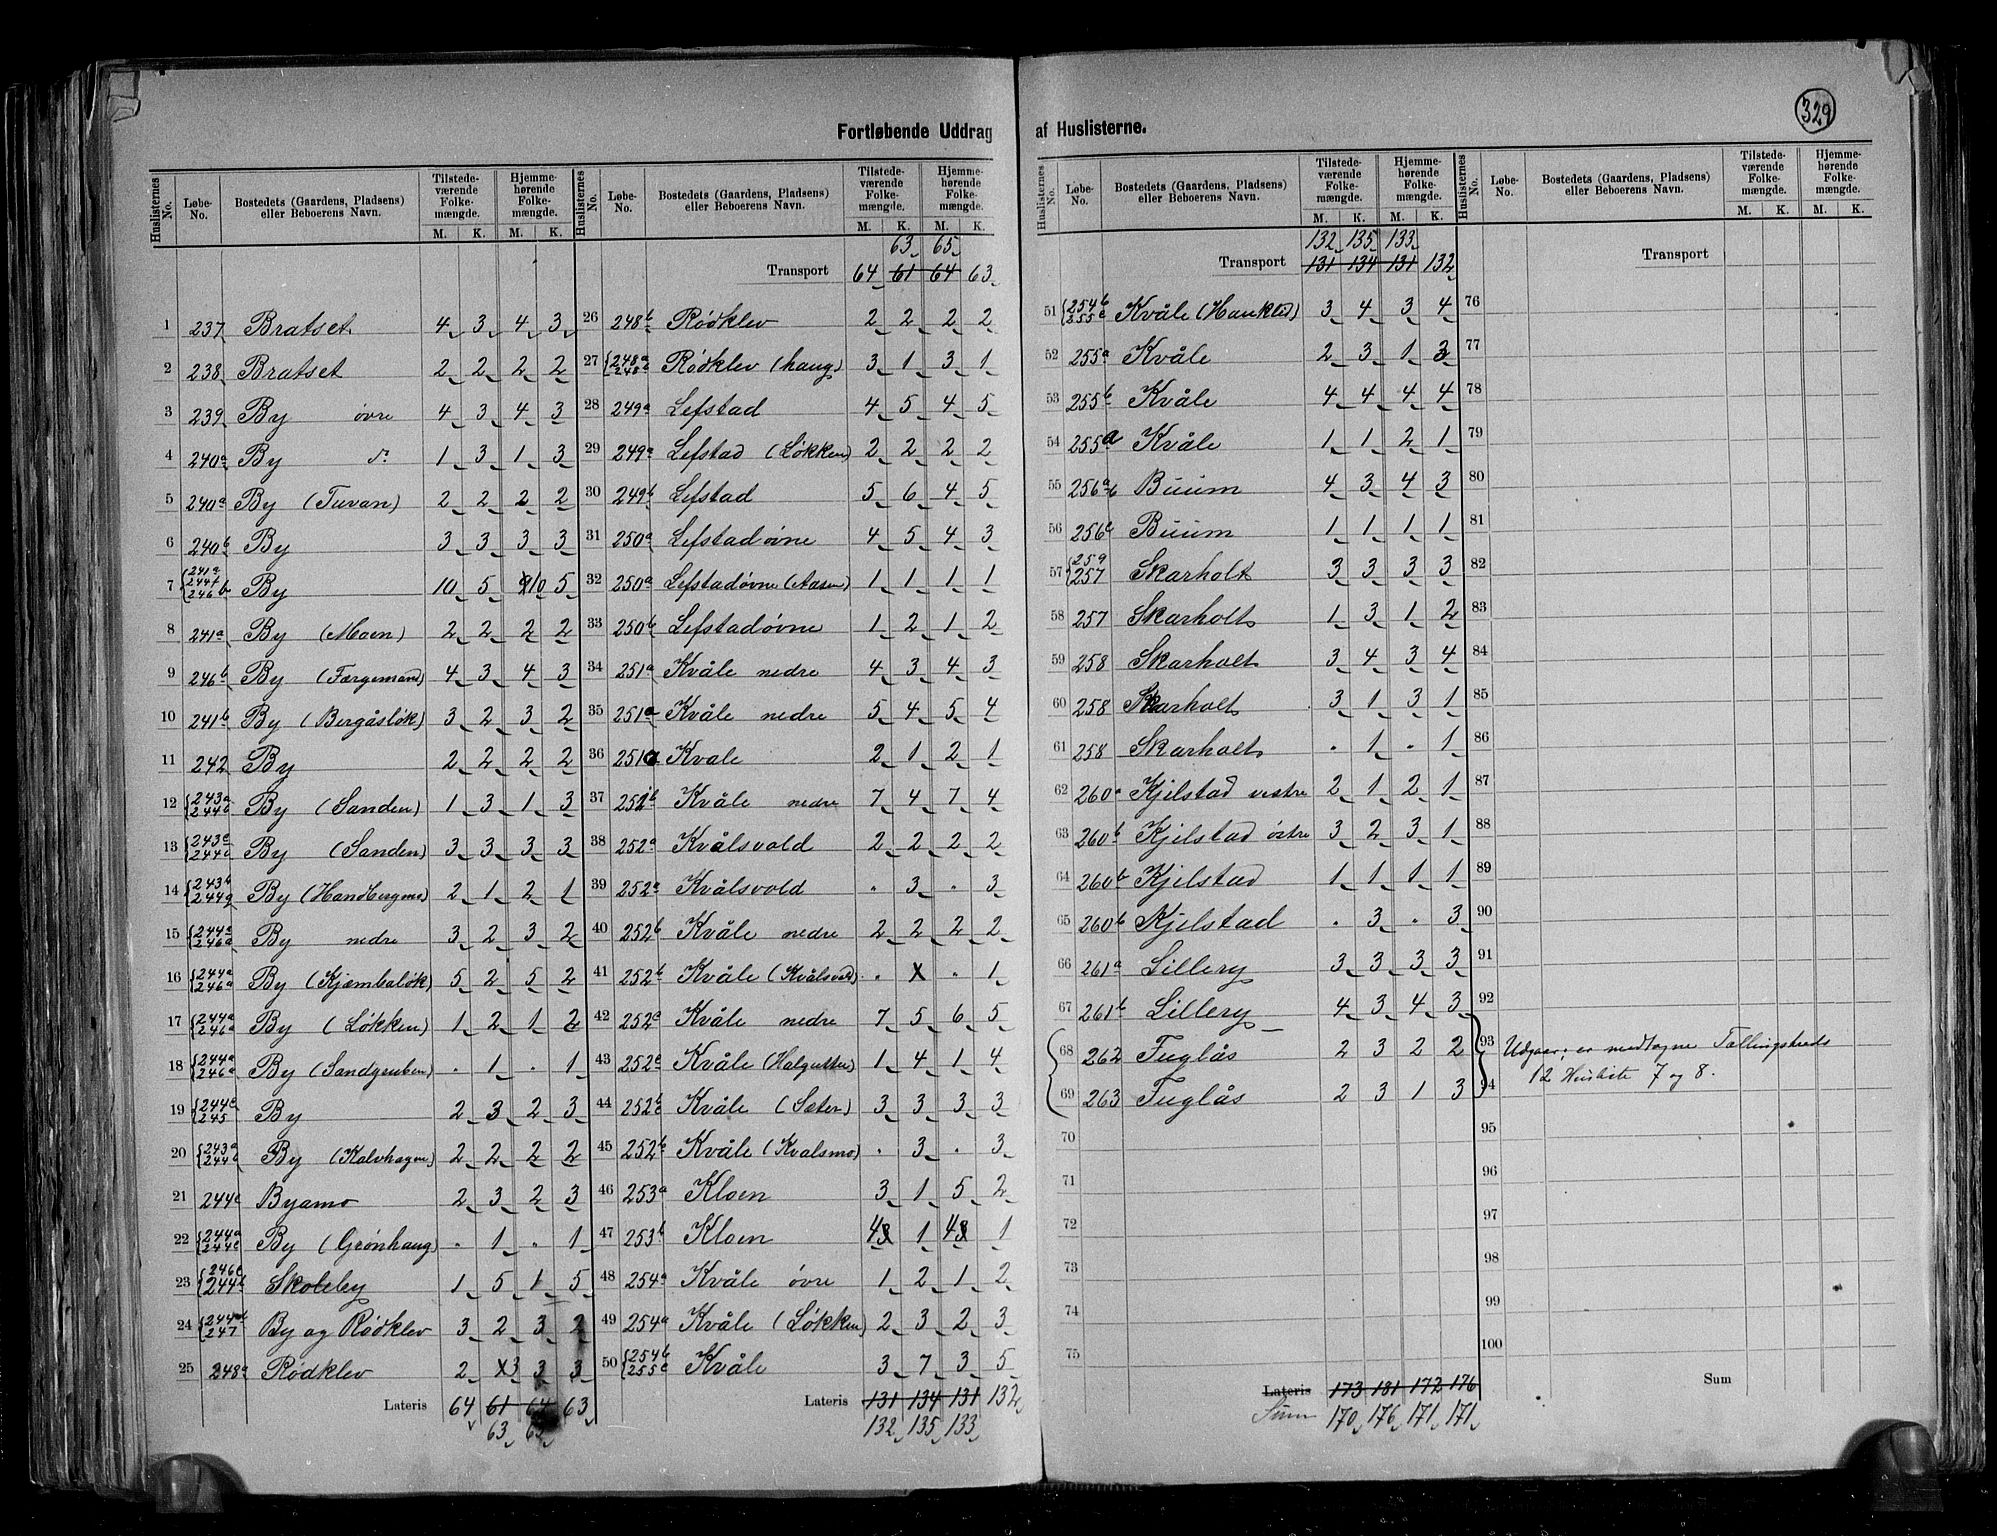 329
Fortløbende Uddrag af Huslisterne.
Huslisternes No. | Løbe-No. | Bostedets (Gaardens, Pladsens) eller Beboerens Navn. | Tilstedeværende Folkemængde. M. K. | Hjemmehørende Folkemængde. M. K.
1 237 Bratset 4 3 4 3
2 238 Bratset 2 2 2 2
3 239 By øvre 4 3 4 3
4 240a By do 1 3 1 3
5 240a By (Tuvan) 2 2 2 2
6 240b By 3 3 3 3
7 241a 244f 246b By 10 5 10 5
8 241a By (Moen) 2 2 2 2
9 246b By (Færgemand) 4 3 4 3
10 241b By (Bergåsløk) 3 2 3 2
11 242 By 2 2 2 2
12 243a By (Sanden) 1 3 1 3
13 By (Sanden) 3 3 3 3
14 243b By (Handbergmo) 2 1 2 1
15 244a 246a By nedre 3 2 3 2
16 244a 246a By (Kjæmbaløk) 5 2 5 2
17 244a 246a By (Løkken) 1 2 1 2
18 244a 246a By (Sandgruben) . 1 . 1
19 244c 245 By 2 3 2 3
20 243a By (Kalvhagen) 2 2 2 2
21 244c Byamo 2 3 2 3
22 244a 244c By (Grønhaug) . 1 . 1
23 246c 244b Skoleby 1 5 1 5
24 247 By og Rødklev 3 2 3 2
25 248a Rødklev 2 3 3 3
Lateris 64 61 64 63
63 65
Huslisternes No. | Løbe-No. | Bostedets (Gaardens, Pladsens) eller Beboerens Navn. | Tilstedeværende Folkemængde. M. K. | Hjemmehørende Folkemængde. M. K.
63 65
Transport 64 61 64 63
26 248b Rødklev 2 2 2 2
27 248a Rødklev (haug) 3 1 3 1
28 249a Lefstad 4 5 4 5
29 249a Lefstad (Løkken) 2 2 2 2
30 249b Lefstad 5 6 4 5
31 250a Lefstadøvne 4 5 4 3
32 250a Lefstadøvne (Aasen) 1 1 1 1
33 250b Lefstadøvne 1 2 1 2
34 251a Kvåle nedre 4 3 4 3
35 251a Kvåle nedre 5 4 5 4
36 251a Kvale 2 1 2 1
37 Kvåle nedre 7 4 7 4
38 252a Kvålsvold 2 2 2 2
39 252a Kvålsvold . 3 . 3
40 252b Kvåle nedre 2 2 2 2
41 252b Kvåle (Kvålsvold) . X . 1
42 252a Kvåle nedre 7 5 6 5
43 252a Kvåle (Halgutten) 1 4 1 4
44 252b Kvåle (Sæter) 3 3 3 3
45 252b Kvåle (Kvalsmo) . 3 . 3
46 253a Kloen 3 1 5 2
47 253b Kloen 4 1 4 1
48 254a Kvåle øvre 1 2 1 2
49 254a Kvåle (Løkken) 2 3 2 3
50 254b 255c Kvåle 3 7 3 5
Lateris 131 134 131 132
132 135 133
Huslisternes No. | Løbe-No. | Bostedets (Gaardens, Pladsens) eller Beboerens Navn. | Tilstedeværende Folkemængde. M. K. | Hjemmehørende Folkemængde. M. K.
132 135 133
Transport 131 134 131 132
51 254b 255c Kvåle 3 4 3 4
52 255a Kvåle 2 3 1 3
53 255b Kvåle 4 4 4 4
54 255a Kvåle 1 1 2 1
55 256 Buum 4 3 4 3
56 256a Buum 1 1 1 1
57 259 257 Skarholt 3 3 3 3
58 257 Skarholt 1 3 1 2
59 258 Skarholt 3 4 3 4
60 258 Skarholt 3 1 3 1
61 258 Skarholt . 1 . 1
62 260a Kjelstad vestre 2 1 2 1
63 260b Kjelstad østre 3 2 3 1
64 260b Kjelstad 1 1 1 1
65 260b Kjelstad . 3 . 3
66 261a Lillery 3 3 3 3
67 261b Lillery 4 3 4 3
68 262 Fuglås 2 3 2 2
69 263 Fuglås 2 3 1 3
70
71
72
73
74
75
Lateris 173 181 172 176
Sum 170 176 171 171
Huslisternes No. | Løbe-No. | Bostedets (Gaardens, Pladsens) eller Beboerens Navn. | Tilstedeværende Folkemængde. M. K. | Hjemmehørende Folkemængde. M. K.
Transport
76
77
78
79
80
81
82
83
84
85
86
87
88
89
90
91
92
93 Udgaar; er medtagne Tællingskreds
94 12 Husliste 7 og 8.
95
96
97
98
99
100
Sum